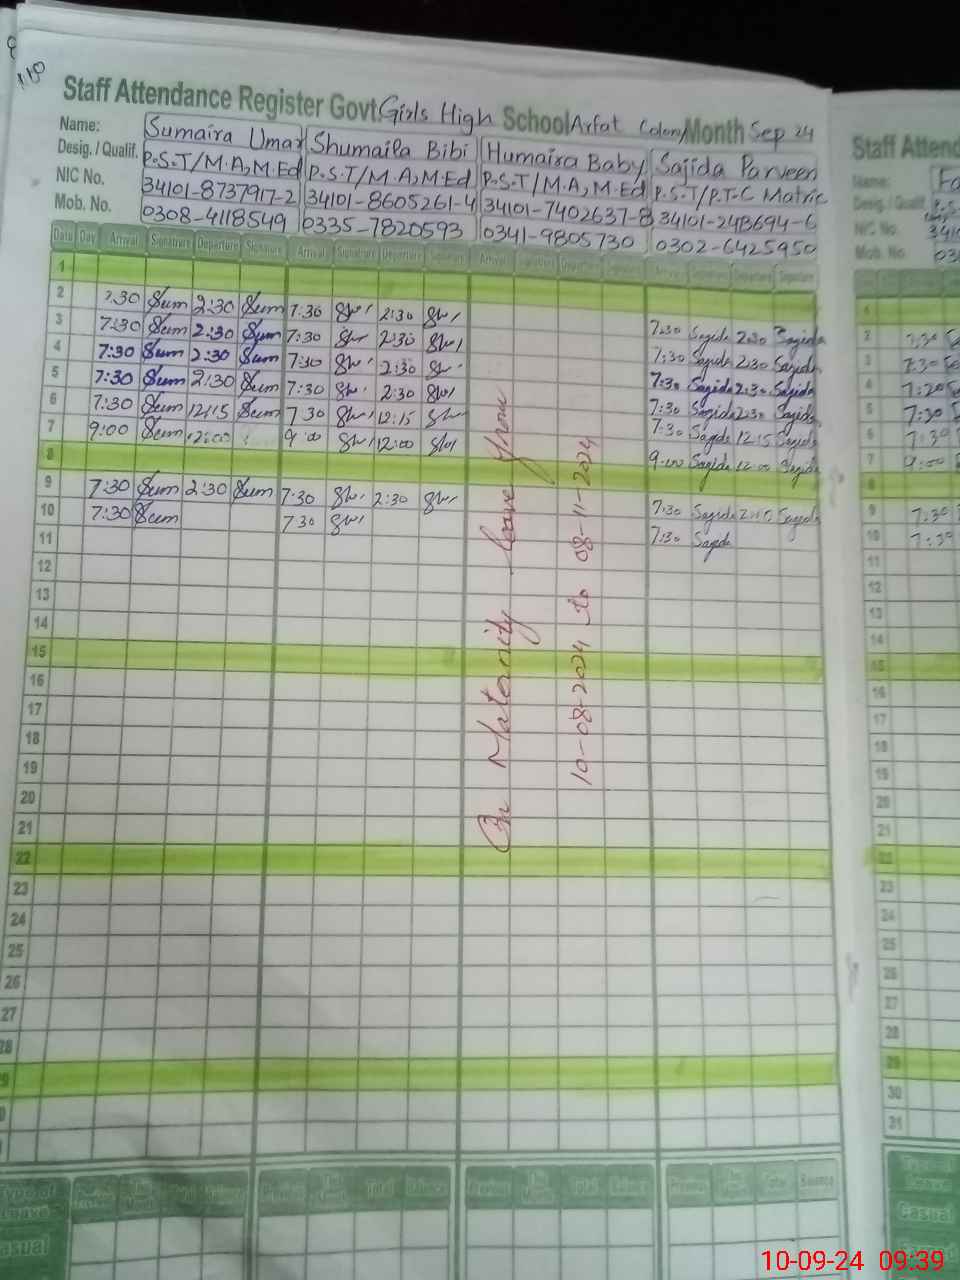 Staff Attendance Register Govt. Girls High School Arfat Colony Month Sep 24
Name: Sumaira Umar Shumaila Bibi Humaira Baby Sajida Parveen
Desig. / Qualif. P.S.T/M.A,M.Ed P.S.T/M.A,M.Ed P.S.T/M.A,M.Ed P.S.T/P.T-C Matric
NIC No. 34101-8737917-2 34101-8605261-4 34101-7402637-8
Mob. No. 0308-4118549 0335-7820593 0341-9805730 0302-6425950
Date Day Arrival Signature Departure Signature Arrival Signature Departure Signature Arrival Signature Departure Signature Arrival Signature Departure Signature
1
2 7:30 Sum 2:30 Sum 7:30 2:30 7:30 Sajida 2:30 Sajida
3 7:30 Sum 2:30 Sum 7:30 2:30 7:30 Sajida 2:30 Sajida
4 7:30 Sum 2:30 Sum 7:30 2:30 7:30 Sajida 2:30 Sajida
5 7:30 Sum 2:30 Sum 7:30 2:30 7:30 Sajida 2:30 Sajida
6 7:30 Sum 12:15 Sum 7:30 12:15 7:30 Sajida 12:15 Sajida
7 9:00 Sum 12:00 9:00 12:00 9:00 Sajida 12:00 Sajida
8
9 7:30 Sum 2:30 Sum 7:30 2:30 7:30 Sajida Sajida
10 7:30 Sum 7:30 7:30 Sajida
11
12
13
14
15
16
17
18
19
20
21
22
23
24
25
26
27
28
On Maternity leave from
10-08-2024 to 08-11-2024
Type of Leave Previous This Month Total Balance Previous This Month Total Balance Previous This Month Total Balance Previous This Month Total Balance
Casual
Staff Attend
Name:
Desig. / Qualif.
NIC No.
Mob. No.
1
2 7:30
3 7:30
4 7:30
5 7:30
6 7:30
7 9:00
8
9 7:30
10 7:30
11
12
13
14
15
16
17
18
19
20
21
22
23
24
25
26
27
28
29
30
31
Type of Leave
Casual
10-09-24 09:39